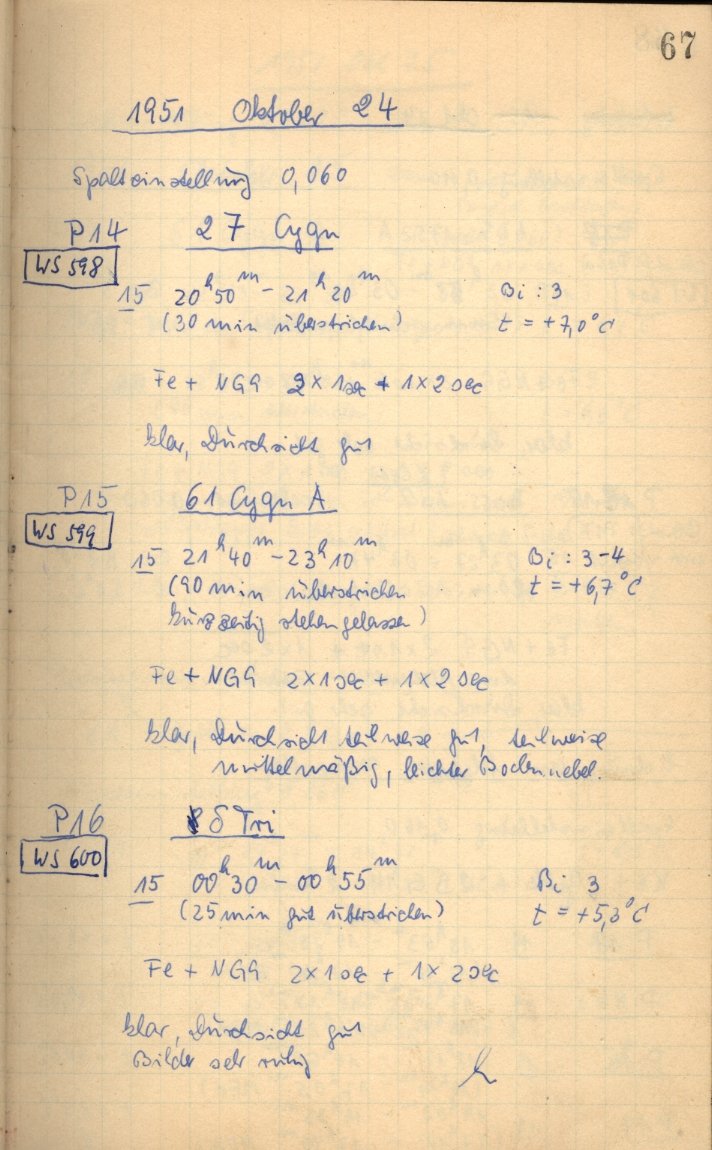 67
1951 Oktober 24
Spalteinstellung 0,060
P14 27 Cygn
WS 598
15 20h50m - 21h20m Bi : 3
(30 min überstrichen) t = +7,0°C
Fe + NGG 2 x 1sec + 1 x 2 sec
klar, Durchsicht gut
P15 61 Cygn A
WS 599
15 21h40m - 23h10m Bi : 3-4
(90 min überstrichen t = +6,7°C
kurzzeitig stehen gelassen)
Fe + NGG 2 x 1 sec + 1 x 2 sec
klar, Durchsicht teilweise gut, teilweise
mittelmäßig, leichter Bodennebel.
P16 δ Tri
WS 600
15 00h30m - 00h55m Bi 3
(25 min gut überstrichen) t = +5,3°C
Fe + NGG 2 x 1 sec + 1 x 2 sec
klar, Durchsicht gut
Bilder sehr ruhig